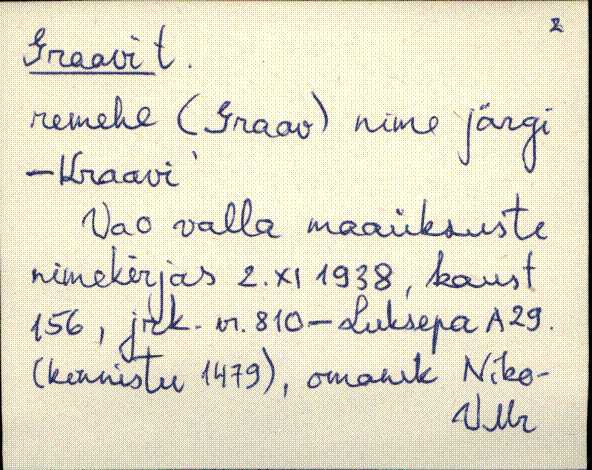 2
Graavi t.
remehe (Graav) nime järgi
- Kraavi
Vao valla maaüksuste
nimekirjas 2. XI 1938, kaust
156, jrk. nr. 810 - Luksepa A29.
(kinnistu 1479), omanik Niko-
VMr